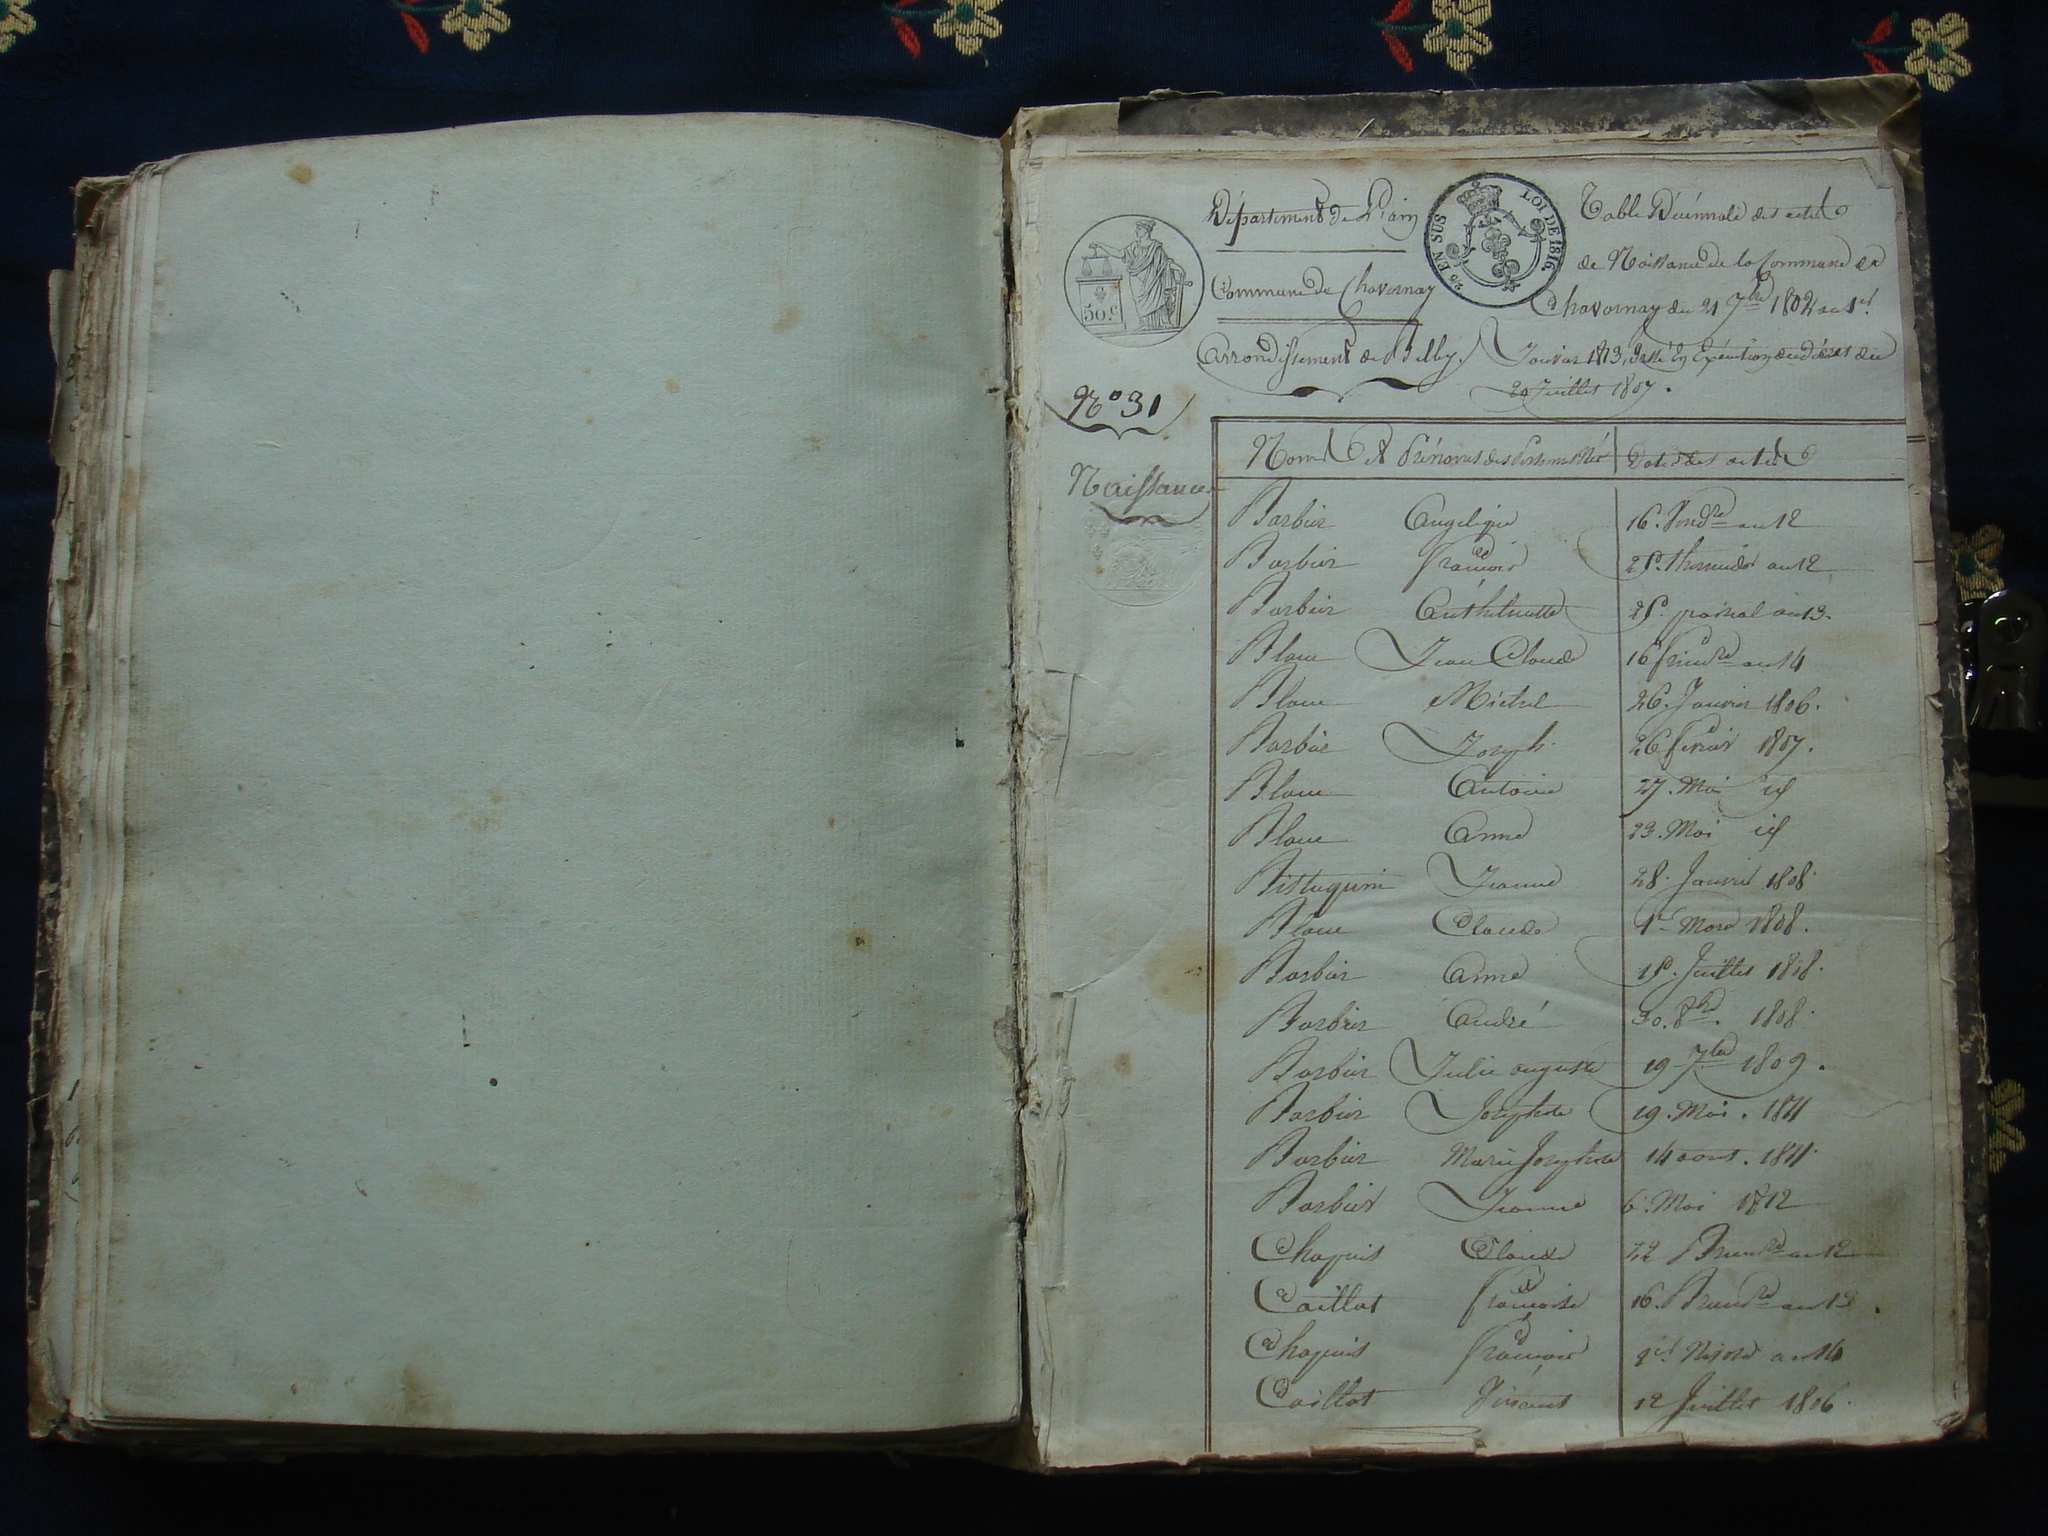 Département de L'ain
Commune de Chavornay
Arrondissement de Belley
50 C
25 C EN SUS LOI DE 1816.
Table Décennale des actes
de Naissance de la Commune de
Chavornay du 21 7bre 1802 au 1er
Janvier 1813, en Exécution du décret du
20 Juillet 1807.
N° 31
Naissances
Noms Et Prénoms des Personnes Nées Dates des actes
Barbier Angelique 16. Vendre an 12
Barbier francois thermidor an 12
Barbier Anthelmette prairial an 13.
Blanc Jean Claude 16 frimre an 14
Blanc Michel 26. Janvier 1806.
Barbier Joseph 26 fevrier 1807.
Blanc Antoine 27. Mai id
Blanc Anne 23. Mai id
Jeanne 28. Janvier 1808.
Blanc Claude 1er Mars 1808.
Barbier Anne Juillet 1808.
Barbier André 30. 8bre. 1808.
Barbier Julie auguste 19 7bre 1809.
Barbier Josephte 19. Mai. 1811
Barbier Marie Josephte 14 aout. 1811.
Barbier Jeanne 6. Mai 1812
Chapuis Claude 22 Brumre an 12
Caillot francoise 16. Brumre an 13.
Chapuis francois Nivose an 14
Caillot Vincent 12 Juillet 1806.